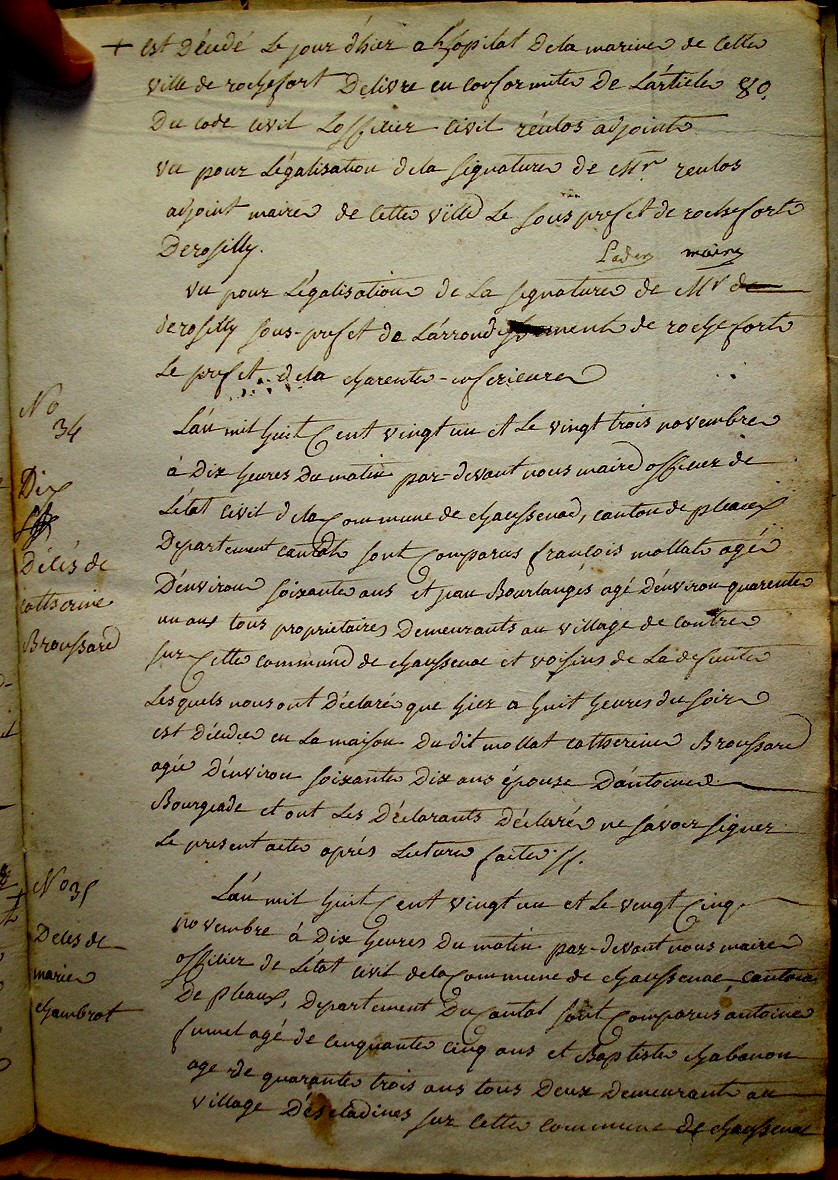 + est décédé le jour d'hier a lhopital dela marine de cette
ville de rochefort Delivre en conformite De L'article 80.
Du code civil Lofficier civil réulos adjoint
vu pour Légalisation dela signature de Mr reulos
adjoint maire de cette ville Le sous prefet de rochefort
Derosilly.
maire
vu pour Légalisation de La signature de Mr de
derosilly sous-prefet de L'arrondissement de rochefort
Le prefet dela charente-inferieure
No
34
Décés de
catherine
Broussard
L'an mil huit Cent vingt un et Le vingt trois novembre
à Dix heures Du matin par-devant nous maire officier de
L'état civil dela Commune de chaussenac, canton de pleaux
Departement cantal sont Comparus françois mollat agé
D'environ soixante ans et jean Bourlangés agé d'environ quarente
un ans tous propriétaires Demeurants au village de contre
sur Cette commune de chaussenac et voisins de La defunte
Lesquels nous ont Déclaré que hier a huit heures du soir
est décédee en La maison Du dit mollat catherine Broussard
agée D'environ soixante Dix ans épouse D'antoine
Bourgeade et ont Les Déclarants Déclaré ne savoir signer
Le present acte aprés Lecture faite.
No 35
Deces de
marie
chambrot
L'an mil huit Cent vingt un et Le vingt Cinq
novembre à Dix heures Du matin par-devant nous maire
officier de L'état civil dela Commune de chaussenac, canton
De pleaux, Departement Du Cantal sont Comparus antoine
fumel agé de cinquante cinq ans et Baptiste chabanon
age de quarante trois ans tous Deux Demeurant au
village D'éscladines sur Cette commune de chaussenac